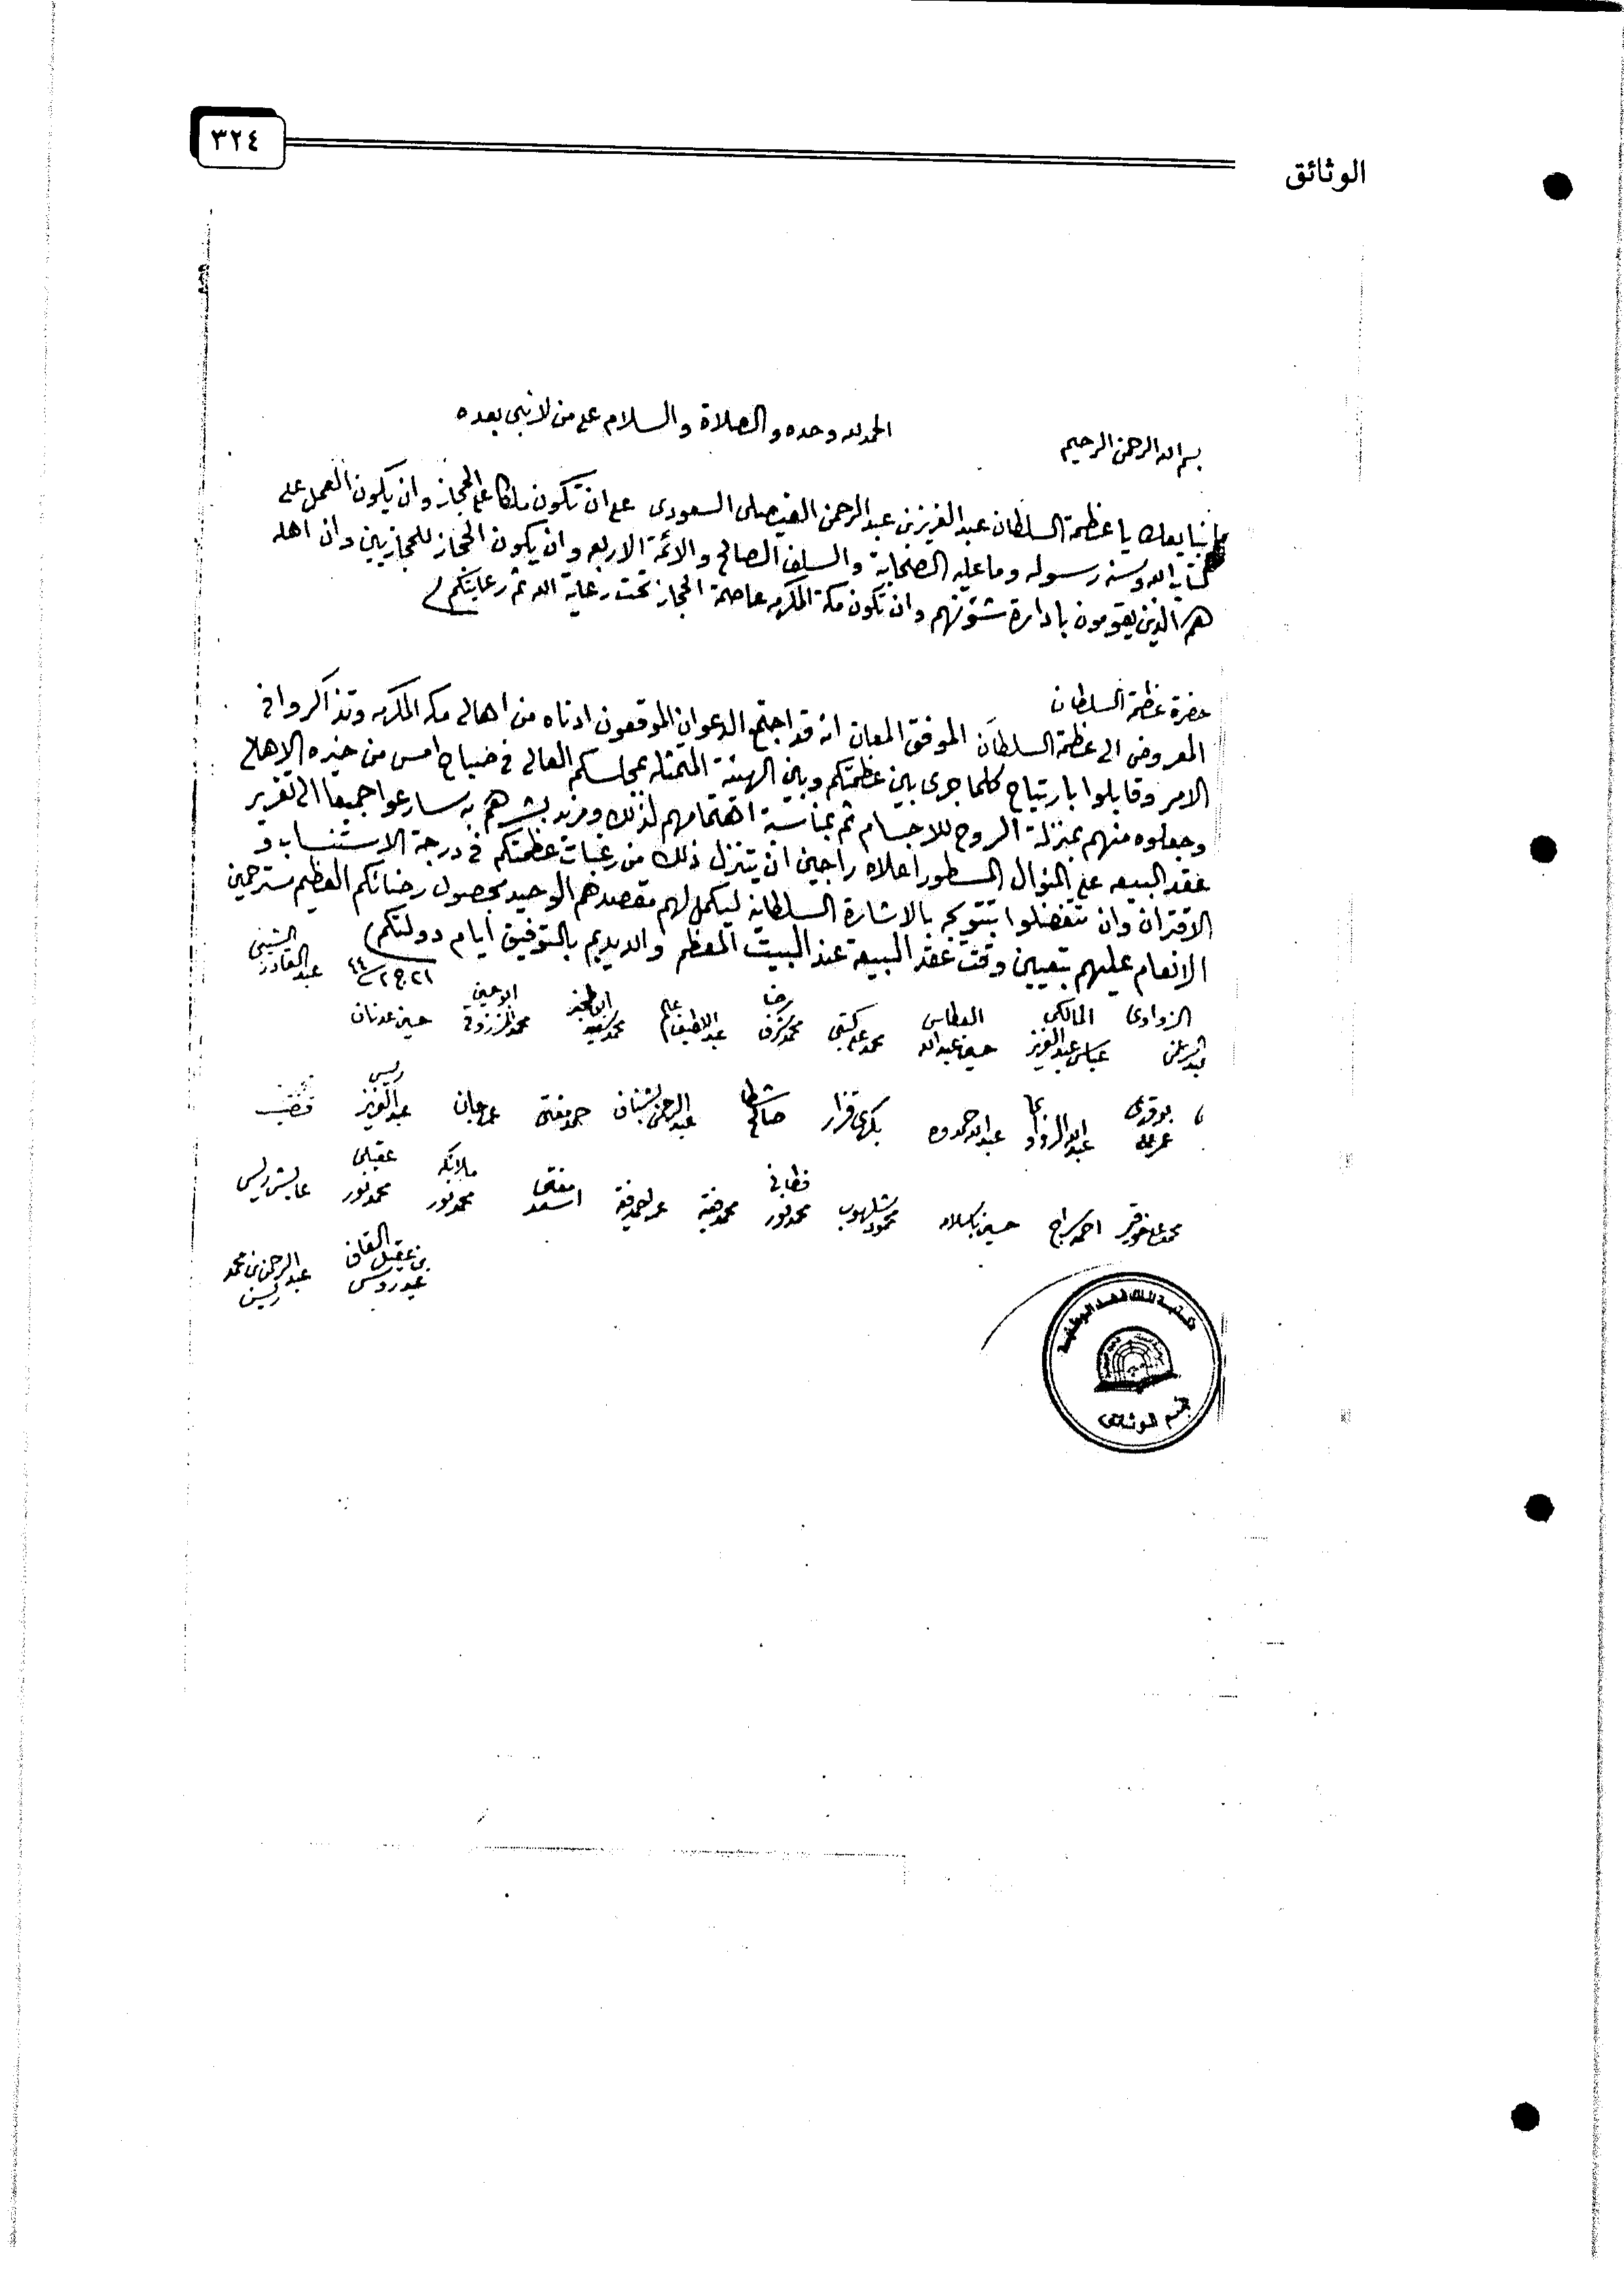 الوثائق
٣٢٤
بسم الله الرحمن الرحيم
الحمد لله وحده والصلاة والسلام على من لا نبي بعده
نبايعك يا عظمة السلطان عبدالعزيز بن عبدالرحمن الفيصل السعودي على ان تكون ملكا على الحجاز وان يكون العمل على
كتاب الله وسنة رسوله وما عليه الصحابة والسلف الصالح والائمة الاربعه وان يكون الحجاز للحجازيين وان اهله
هم الذين يقومون بادارة شئونهم وان تكون مكة المكرمه عاصمة الحجاز تحت رعاية الله ثم رعايتكم
حضرة عظمة السلطان
المعروض الى عظمة السلطان الموفق المعان انه قد اجتمع الداعون الموقعون ادناه من اهالي مكه المكرمه وتذاكروا في
الامر وقابلوا بارتياح كلما جرى بين عظمتكم وبين الهيئة المتمثله بمجلسكم العالي في صباح امس من خيره الاهالي
وجعلوه منهم بمنزلة الروح للاجسام ثم بمناسبة اهتمامهم لذلك ومزيد بشرهم به سارعوا جميعا الى تقرير
عقد البيعه على المنوال المسطور اعلاه راجين ان يتنزل ذلك من رغبات عظمتكم في درجة الاستنساب و
الاقتران وان تتفضلوا بتتويجه بالاشارة السلطانية ليكمل لهم مقصدهم الوحيد بحصول رضائكم العظيم مسترحمين
الانعام عليهم بتعيين وقت عقد البيعة عند البيت المعظم والله يديم بالتوفيق ايام دولتكم
عبدالقادر الشيبي
الزواوي عباس عبدالعزيز المالكي حسين عبدالله العطاس محمد علي كتبي محمد شرف رضا عبداللطيف عالم محمد سعيد ابوالخير محمد المرزوقي ابوحسين حسين عدنان
بوقري عبدالله حمدوه بكري قزاز صالح شطا عبدالرحمن بشناق عمر جان عبدالعزيز ريس
محمد علي خوقير احمد سراج حسين باسلامه محمود شلهوب محمد نور فطاني اسعد مفتي محمد نور ملائكه محمد نور عقيلي عايش ريس
عيدروس بن عقيل السقاف عبدالرحمن بن محمد ريس
مكتبة الملك فهد الوطنية
قسم الوثائق